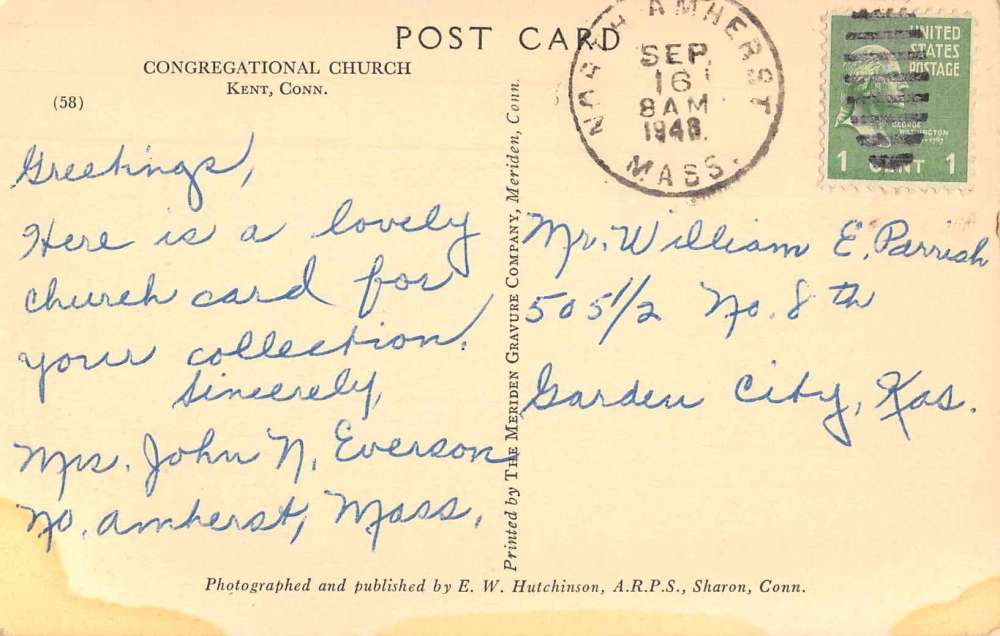 POST CARD
CONGREGATIONAL CHURCH
KENT, CONN.
(58)
NORTH AMHERST
SEP
16
8 AM
1948
MASS.
UNITED
STATES
POSTAGE
GEORGE
WASHINGTON
1 CENT 1
Greetings,
Here is a lovely
church card for
your collection.
Sincerely,
Mrs. John N. Everson
No. Amherst, Mass.
Mr. William E. Parrish
505 1/2 No. 8th
Garden City, Kas.
Printed by THE MERIDEN GRAVURE COMPANY, Meriden, Conn.
Photographed and published by E. W. Hutchinson, A.R.P.S., Sharon, Conn.